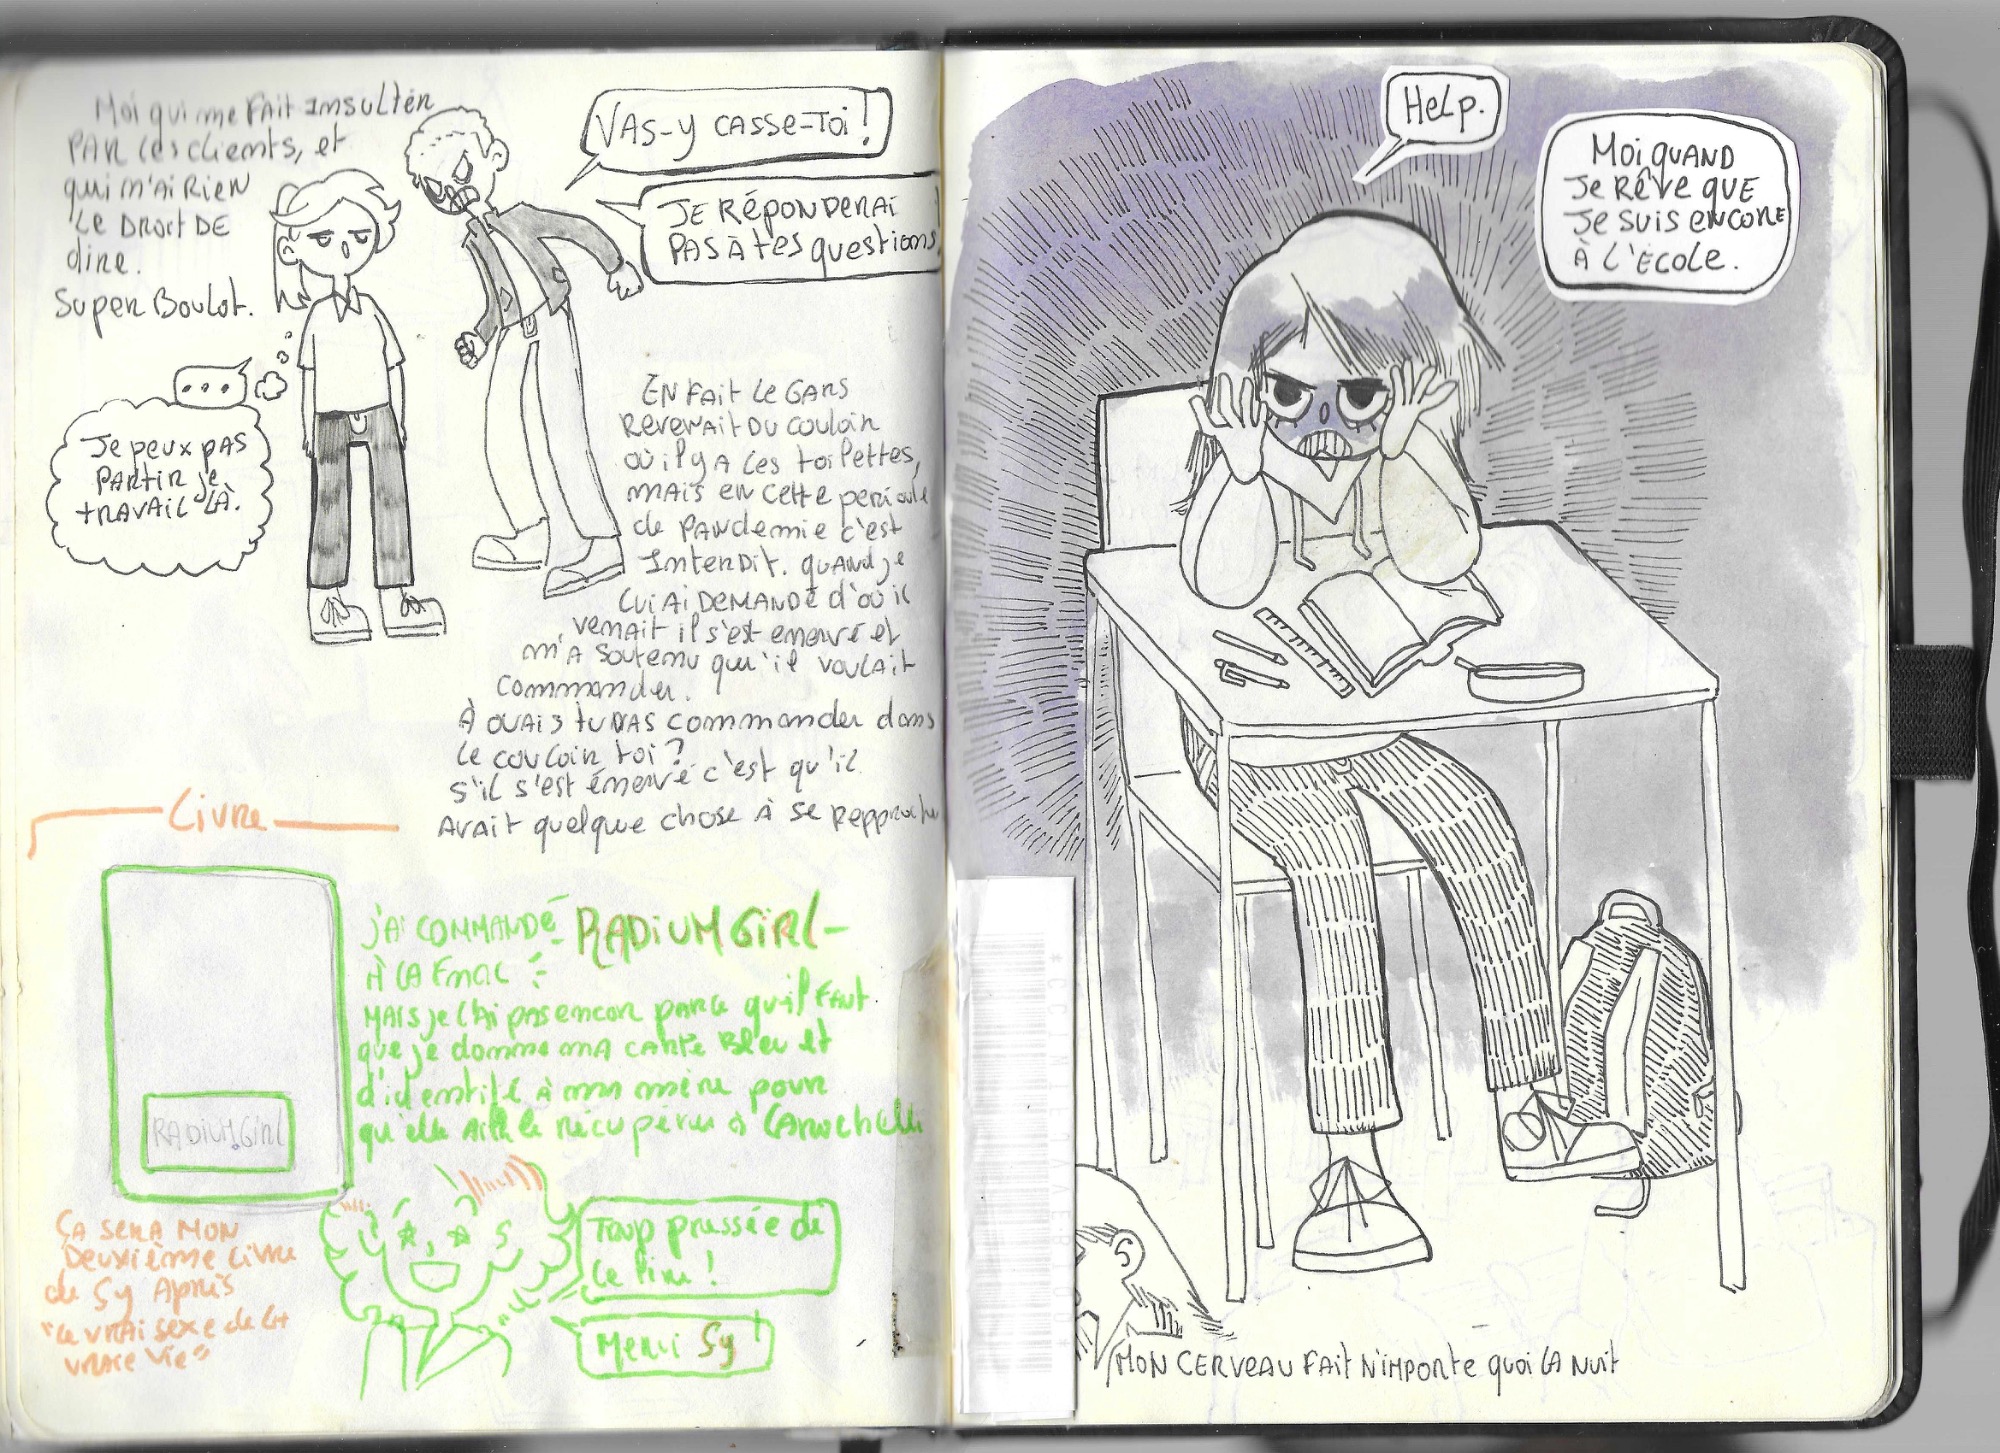 Moi qui me fait insulter
par les clients, et
qui m'ai rien
le droit de
dire.
Super Boulot.
Vas-y casse-toi !
Je réponderai
pas à tes questions !
...
Je peux pas
partir je
travail là.
En fait le gars
revenait du couloir
où il y a les toilettes,
mais en cette periode
de pandemie c'est
interdit. quand je
lui ai demandé d'où il
venait il s'est enervé et
m'a soutenu qu'il voulait
commander.
À ouais tu vas commander dans
le couloir toi ?
s'il s'est énervé c'est qu'il
avait quelque chose à se repprocher
Livre
RADIUM GIRL
J'ai commandé RADIUM GIRL
à la Fnac
mais je l'ai pas encor parce qu'il faut
que je donne ma carte bleu et
d'identité à ma mère pour
qu'elle aille le récupérer à Larochelle
Ça sera mon
deuxième livre
de Sy après
"le vrai sexe de la
vraie vie"
Trop pressée de
le lire !
Merci Sy !
Help.
Moi quand
je rêve que
je suis encore
à l'école.
Mon cerveau fait n'importe quoi la nuit